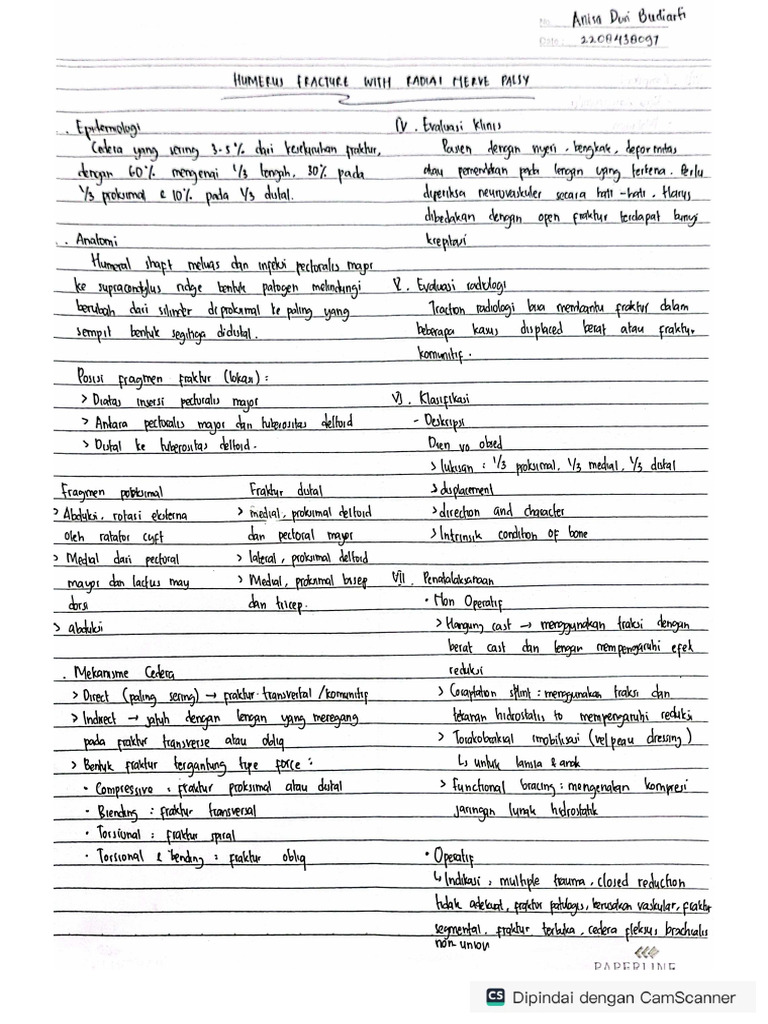 No. Anisa Dwi Budiarti
Date: 2208438097
HUMERUS FRACTURE WITH RADIAL NERVE PALSY
. Epidemiologi
Cedera yang sering 3-5% dari keseluruhan fraktur,
dengan 60% mengenai 1/3 tengah, 30% pada
1/3 proksimal & 10% pada 1/3 distal.
. Anatomi
Humeral shaft meluas dari infeksi pectoralis major
ke supracondylus ridge bentuk patogen melindungi
berubah dari silinder di proksimal ke paling yang
sempit bentuk segitiga didistal.
Posisi fragmen fraktur (lokasi) :
> Diatas insersi pectoralis major
> Antara pectoralis major dan tuberositas deltoid
> Distal ke tuberositas deltoid.
Fragmen proksimal
> Abduksi, rotasi eksterna
oleh rotator cuff
> Medial dari pectoral
mayor dan lactus may
dorsi
> abduksi
Fraktur distal
> medial, proksimal deltoid
dan pectoral mayor
> lateral, proksimal deltoid
> Medial, proksimal bisep
dan tricep.
. Mekanisme Cedera
> Direct (paling sering) → fraktur transversal / komunitif
> Indirect → jatuh dengan lengan yang meregang
pada fraktur transverse atau obliq
> Bentuk fraktur tergantung type force :
• Compressive : fraktur proksimal atau distal
• Blending : fraktur transversal
• Torsional : fraktur spiral
• Torsional & bending : fraktur obliq
IV . Evaluasi Klinis
Pasien dengan nyeri, bengkak, deformitas
atau pemendekan pada lengan yang terkena. Perlu
diperiksa neurovaskuler secara hati-hati. Harus
dibedakan dengan open fraktur terdapat bunyi
krepitasi
V. Evaluasi radiologi
Traction radiologi bisa membantu fraktur dalam
beberapa kasus displaced berat atau fraktur
komunitif.
VI. Klasifikasi
- Deskripsi
Open vs closed
> lukisan : 1/3 proksimal, 1/3 medial, 1/3 distal
> displacement
> direction and character
> Intrinsik condition of bone
VII . Penatalaksanaan
• Non Operatif
> Hanging cast → menggunakan traksi dengan
berat cast dan lengan mempengaruhi efek
reduksi
> Coaptation splint : menggunakan traksi dan
tekanan hidrostatis to mempengaruhi reduksi
> Torakobrakial imobilisasi (velpeau dressing)
↳ untuk lansia & anak
> functional bracing : mengenakan kompresi
jaringan lunak hidrostatik
• Operatif
↳ Indikasi : multiple trauma, closed reduction
tidak adekuat, fraktur patologis, kerusakan vaskular, fraktur
segmental, fraktur terbuka, cedera fleksus brachialis
non union
PAPERLINE
CS Dipindai dengan CamScanner